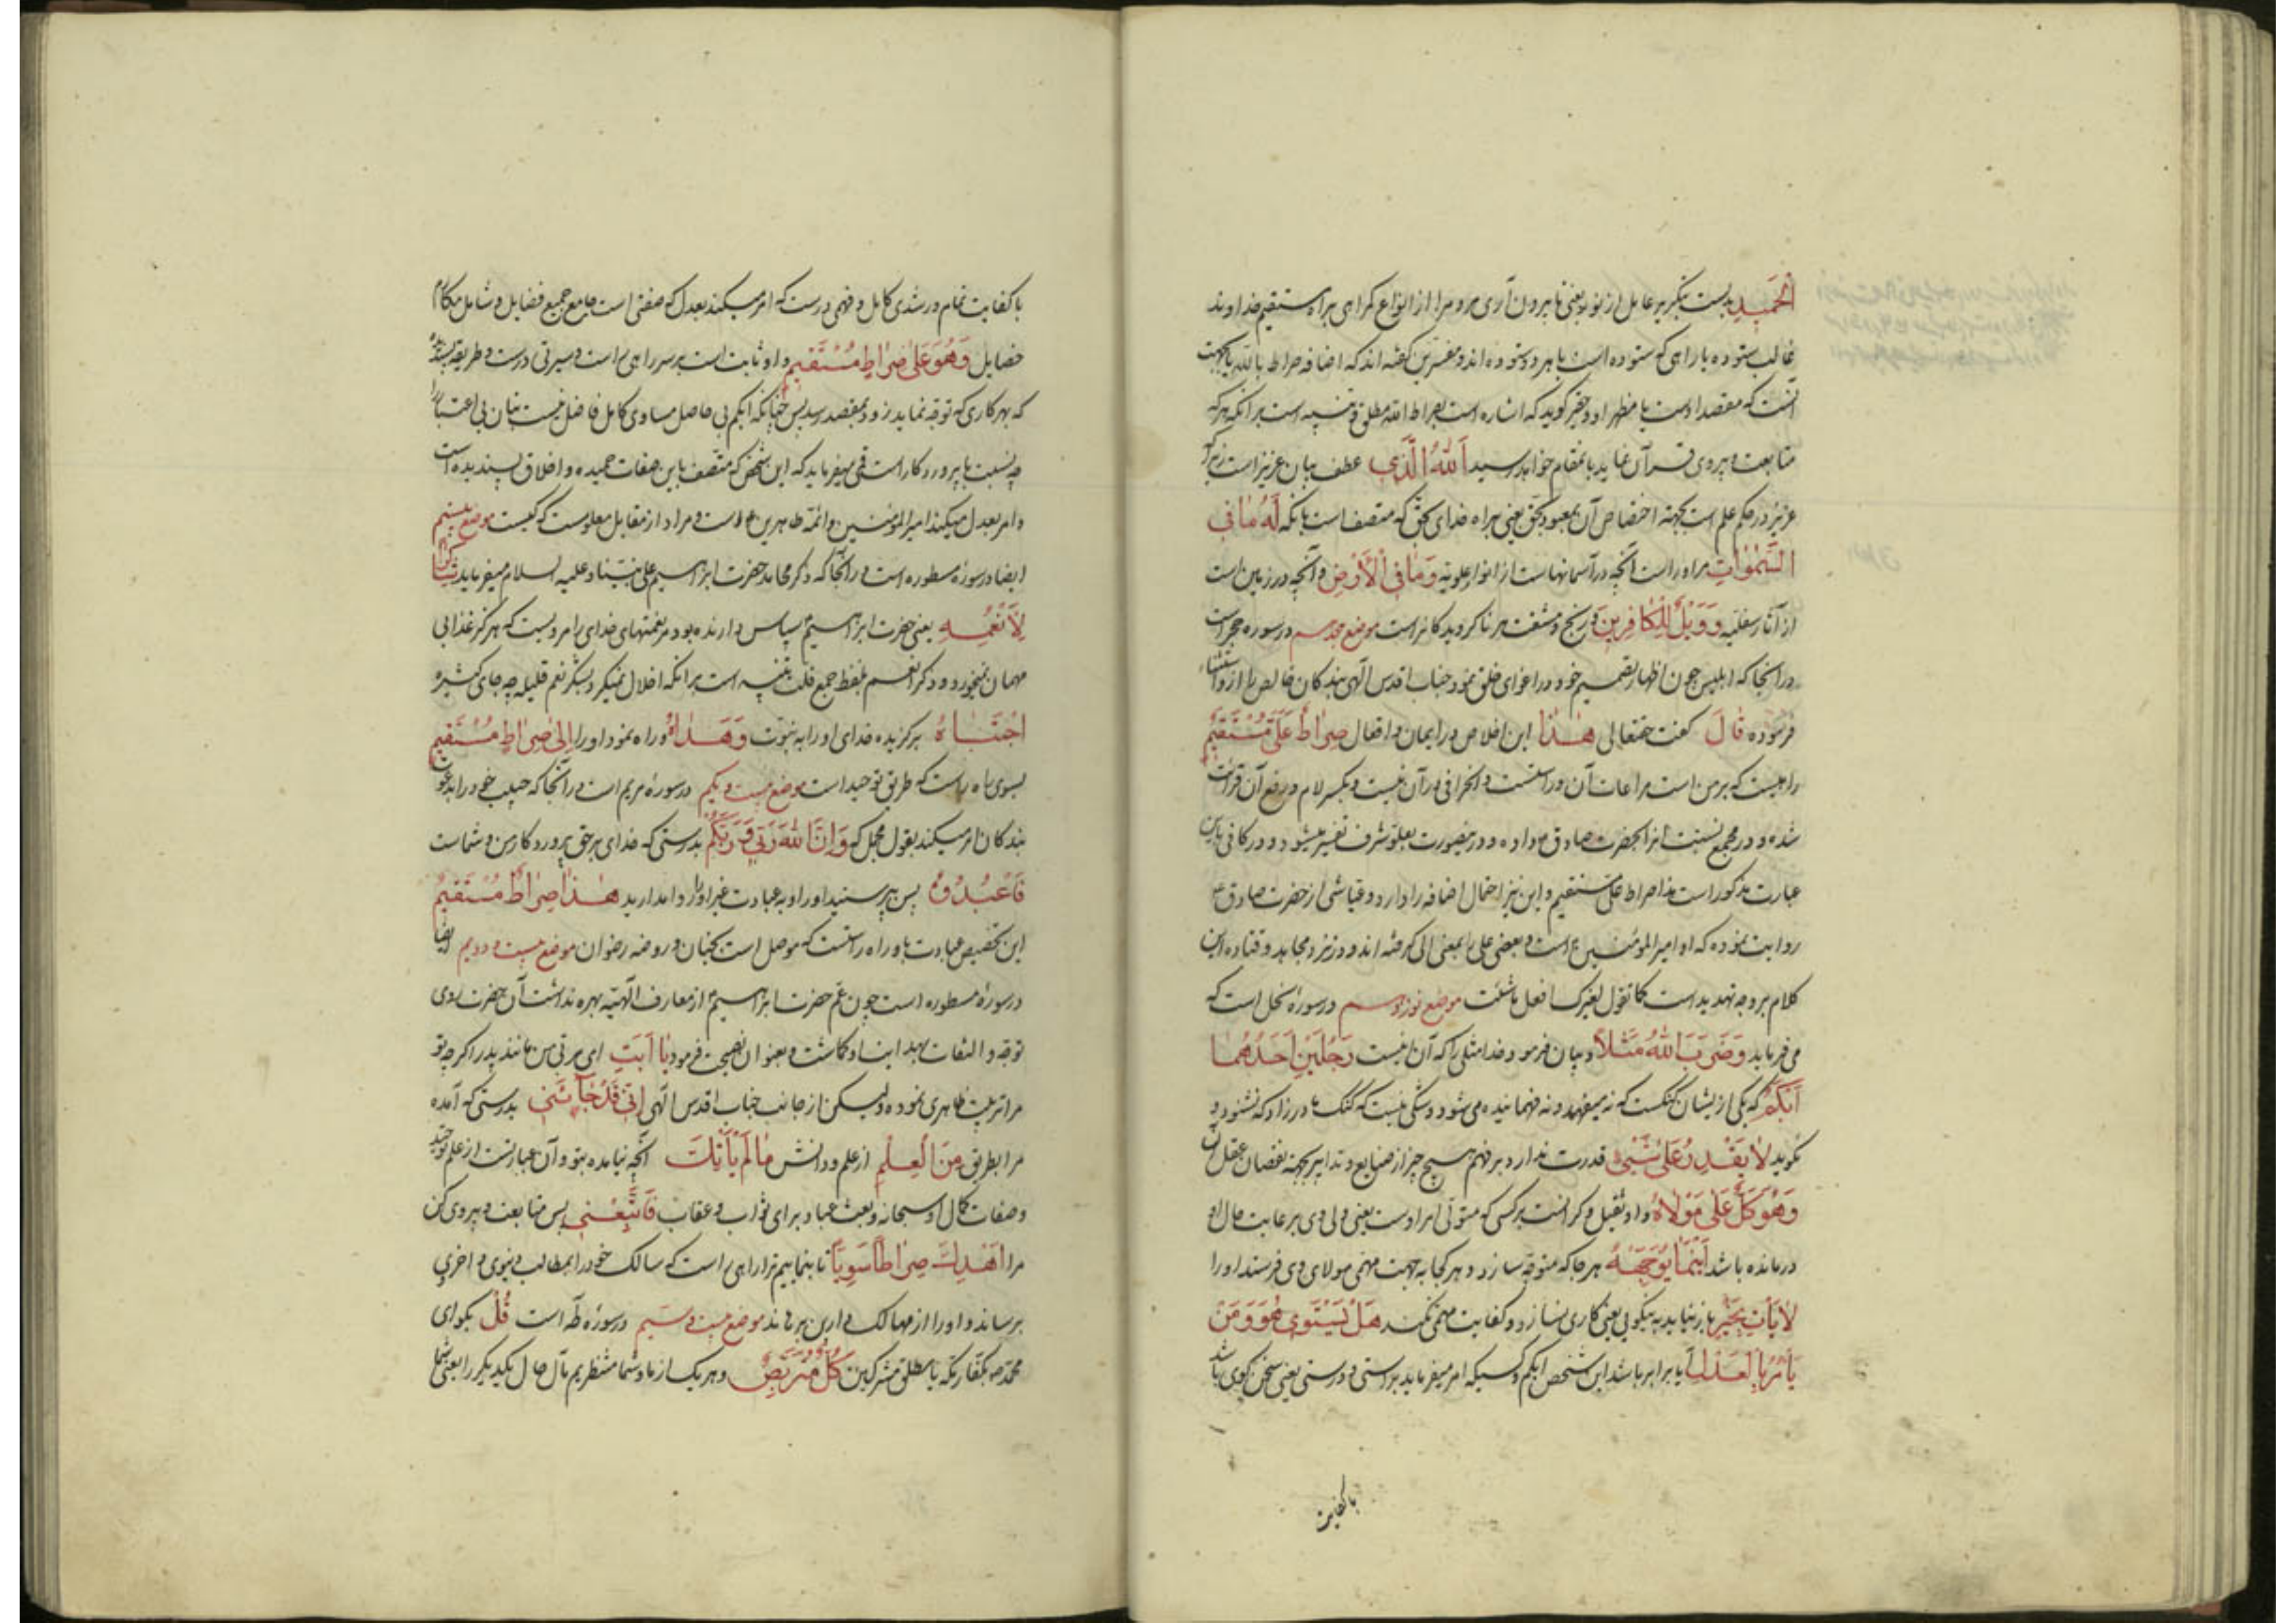 الحمید بدست بگیر عامل از نور یعنی تا بیرون آری مردمرا از انواع کمراهی براه مستقیم خداوند
غالب ستوده یا راهی که ستوده است یا هر دو ستوده اند و مفسرین گفته اند که اضافه صراط بالله یا بجهت
آنست که مقصد اوست یا مظهر او و حقیر کوید که اشاره است بصراط الله مطلق و تنبیه است بر انکه هر که
متابعت و پیروی قرآن نماید بانمقام خواهد رسید اَللهِ الَّذی عطف بیان عزیز است زیرا که
عزیز در حکم علم است بجهة اختصاص آن بمعبود بحق یعنی براه خدای بحق که متصف است بانکه لَهُ مٰا فِی
السَّمٰوٰاتِ مر او راست آنچه در آسمانهاست از انوار علویه وَمٰا فِی الْاَرْضِ و آنچه در زمین است
از آثار سفلیه وَوَیْلٌ لِلْکٰافِرینَ و رنج و مشقت مر ناکرویدکانراست موضع هجدهم در سوره حجر است
در انجا که ابلیس چون اظهار تصمیم خود در اغوای خلق نمود جناب اقدس الهی بندکان خالص را از او استثناء
فرموده قٰالَ کفت حقتعالی هٰذٰا این اخلاص در ایمان و افعال صِرٰاطٌ عَلَیَّ مُسْتَقیمٌ
راهیست که بر من است مراعات آن و راستست و انحرافی در آن نیست و بکسر لام و رفع آن قرائت
شده و در مجمع نسبت آنرا بحضرت صادق ع داده و در ینصورت بعلو شرف تفسیر میشود و در کافی باین
عبارت مذکور است هذا صراط علی مستقیم و این نیز احتمال اضافه را دارد و عیاشی از حضرت صادق ع
روایت نموده که او امیر المومنین ع است و بعضی علی را بمعنی الی کرفته اند و در نزد مجاهد و قتاده این
کلام بر وجه تهدید است کما تقول لغیرک افعل ما شئت موضع نوزدهم در سورهٔ نحل است که
می فرماید وَضَرَبَ اللهُ مَثَلاً و بیان فرمود خدا مثلی را که آن اینست رَجُلَیْنِ اَحَدُهُمٰا
اَبْکَمُ که یکی از ایشان کنکست که نه میفهمد و نه فهمانیده می شود و شکی نیست که کنک مادر زاد که نشنود و
نکوید لٰا یَقْدِرُ عَلیٰ شَیْئٍ قدرت ندارد بر فهم هیچ چیز از صنایع و تدابیر بجهة نقصان عقل او
وَهُوَ کَلٌّ عَلیٰ مَوْلٰاهُ و او ثقیل و کرانست بر کسی که متولی امر اوست یعنی ولی وی بر رعایت حال او
درمانده باشد اَیْنَمٰا یُوَجِّهْهُ هر جا که متوجه سازد و هر کجا به جهت مهمی مولای وی فرستد او را
لٰا یَأْتِ بِخَیْرٍ باز نیاید به نیکویی یعنی کاری نسازد و کفایت مهمی نکند هَلْ یَسْتَوی هُوَ وَ مَنْ
یَأْمُرُ بِالْعَدْلِ آیا برابر باشد این شخص ابکم و کسیکه امر میفرماید براستی و درستی یعنی سخن کوی باشد
با کفایت
با کفایت تمام و رشدی کامل و فهمی درست که امر میکند بعدل که صفتی است جامع جمیع فضایل و شامل مکارم
خصایل وَهُوَ عَلیٰ صِرٰاطٍ مُسْتَقیمٍ و او ثابت است بر سر راهی راست و سیرتی درست و طریقه پسندیده
که بهر کاری که توجه نماید زود بمقصد رسد پس چنانکه ابکم بی حاصل مساوی کامل فاضل نیست بتان بی اعتبار را
چه نسبت با پروردکار است قمی میفرماید که این شخص که متصف باین صفات حمیده و اخلاق پسندیده است
و امر بعدل میکند امیر المومنین و ائمه طاهرین ع است و مراد از مقابل معلومست که کیست موضع بیستم
ایضا در سورهٔ مسطوره است در انجا که ذکر محامد حضرت ابراهیم علی نبینا و علیه السلام میفرماید شٰاکِراً
لِاَنْعُمِهِ یعنی حضرت ابراهیم ع سپاس دارنده بود مر نعمتهای خدایرا مرویست که هرکز غذا بی
مهمان نمیخورد و ذکر انعم بلفظ جمع قلت تنبیه است بر انکه اخلال نمیکرد بشکر نعم قلیله چه جای کثیره
اجْتَبٰاهُ برکزیده خدای او را به نبوت وَهَدٰاهُ و راه نمود او را اِلیٰ صِرٰاطٍ مُسْتَقیمٍ
بسوی راه راست که طریق توحید است موضع بیست و یکم در سورهٔ مریم است در آنجا که حبیب خود را بدعوت
بندکان امر میکند بقول مجمل که وَاِنَّ اللهَ رَبّی وَرَبُّکُمْ بدرستی که خدای بر حق پروردکار من و شماست
فَاعْبُدُوهُ پس بپرستید او را و به عبادت غیر او را وا مدارید هٰذٰا صِرٰاطٌ مُسْتَقیمٌ
این تخصیص عبادت باو راه راستست که موصل است بجنان و روضه رضوان موضع بیست و دویم ایضا
در سورهٔ مسطوره است چون عم حضرت ابراهیم ع از معارف الهیه بهره نداشت آن حضرت روی
توجه و التفات بهدایت او کماشت و بعنوان نصیحت فرمود یٰا اَبَتِ ای مربی من مانند پدر اکر چه تو
مرا تربیت ظاهری نموده ولیکن از جانب جناب اقدس الهی اِنّی قَدْ جٰآئَنی بدرستی که آمده
مرا بطریق مِنَ الْعِلْمِ از علم و دانش مٰا لَمْ یَأْتِکَ آنچه نیامده بتو و آن عبارتست از علم توحید
و صفات کمال او سبحانه و بعث عباد برای ثواب و عقاب فَاتَّبِعْنی پس متابعت و پیروی کن
مرا اَهْدِکَ صِرٰاطاً سَوِیّاً تا بنمایم ترا راهی راست که سالک خود را بمطالب دنیوی و اخروی
برساند و او را از مهالک دارین برهاند موضع بیست و سیم در سورهٔ طه است قُلْ بکو ای
محمد ص بکفار مکه یا مطلق مشرکین کُلٌّ مُتَرَبِّصٌ هر یک از ما و شما منتظریم مآل حال یکدیکر را یعنی شما